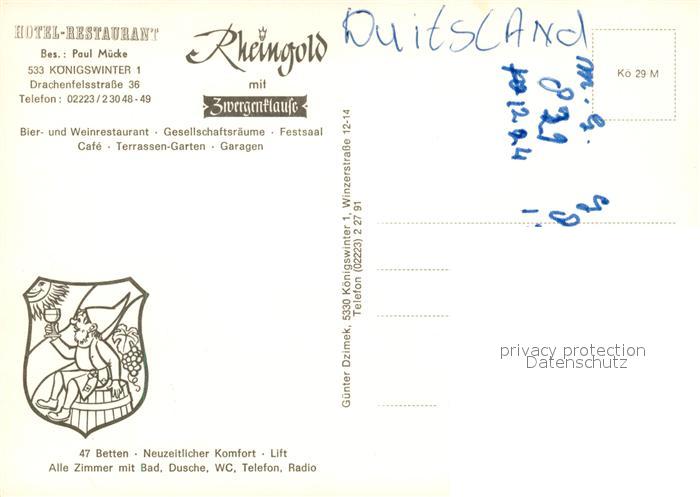 HOTEL-RESTAURANT
Bes.: Paul Mücke
533 KÖNIGSWINTER 1
Drachenfelsstraße 36
Telefon: 02223/23048-49
Rheingold
mit
Zwergenklause
Bier- und Weinrestaurant · Gesellschaftsräume · Festsaal
Café · Terrassen-Garten · Garagen
47 Betten · Neuzeitlicher Komfort · Lift
Alle Zimmer mit Bad, Dusche, WC, Telefon, Radio
Günter Dzimek, 5330 Königswinter 1, Winzerstraße 12-14
Telefon (02223) 2 27 91
DuitsLANd
Kö 29 M
privacy protection
Datenschutz